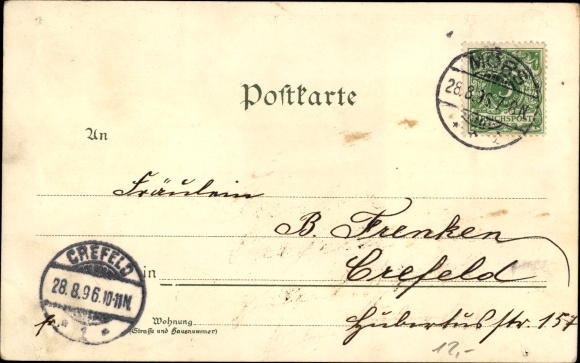 MÖRS
28.8.96. 7-8N.
REICHSPOST
Postkarte
An
Fräulein
B. Frenken
in Crefeld
CREFELD
28.8.96.10-11N.
Wohnung
(Straße und Hausnummer)
Hubertusstr. 157
12,-